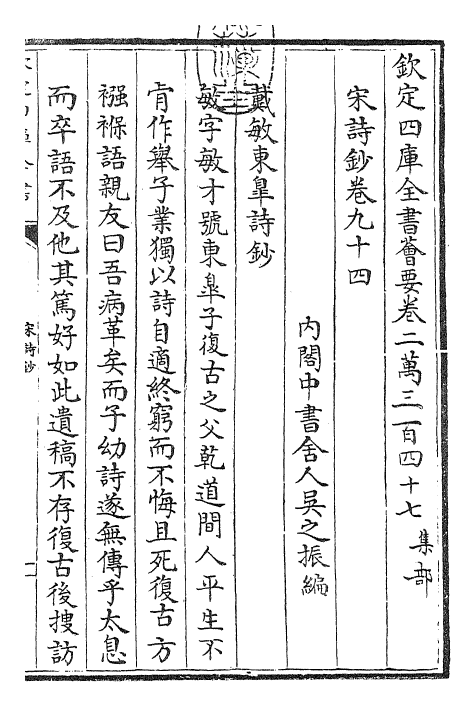 欽定四庫全書薈要卷二萬三百四十七 集部
宋詩鈔卷九十四
內閣中書舍人吳之振編
戴敏東臯詩鈔
敏字敏才號東臯子復古之父乾道間人平生不
肯作舉子業獨以詩自適終窮而不悔且死復古方
襁褓語親友曰吾病革矣而子幼詩遂無傳乎太息
而卒語不及他其篤好如此遺稿不存復古後搜訪
宋詩鈔